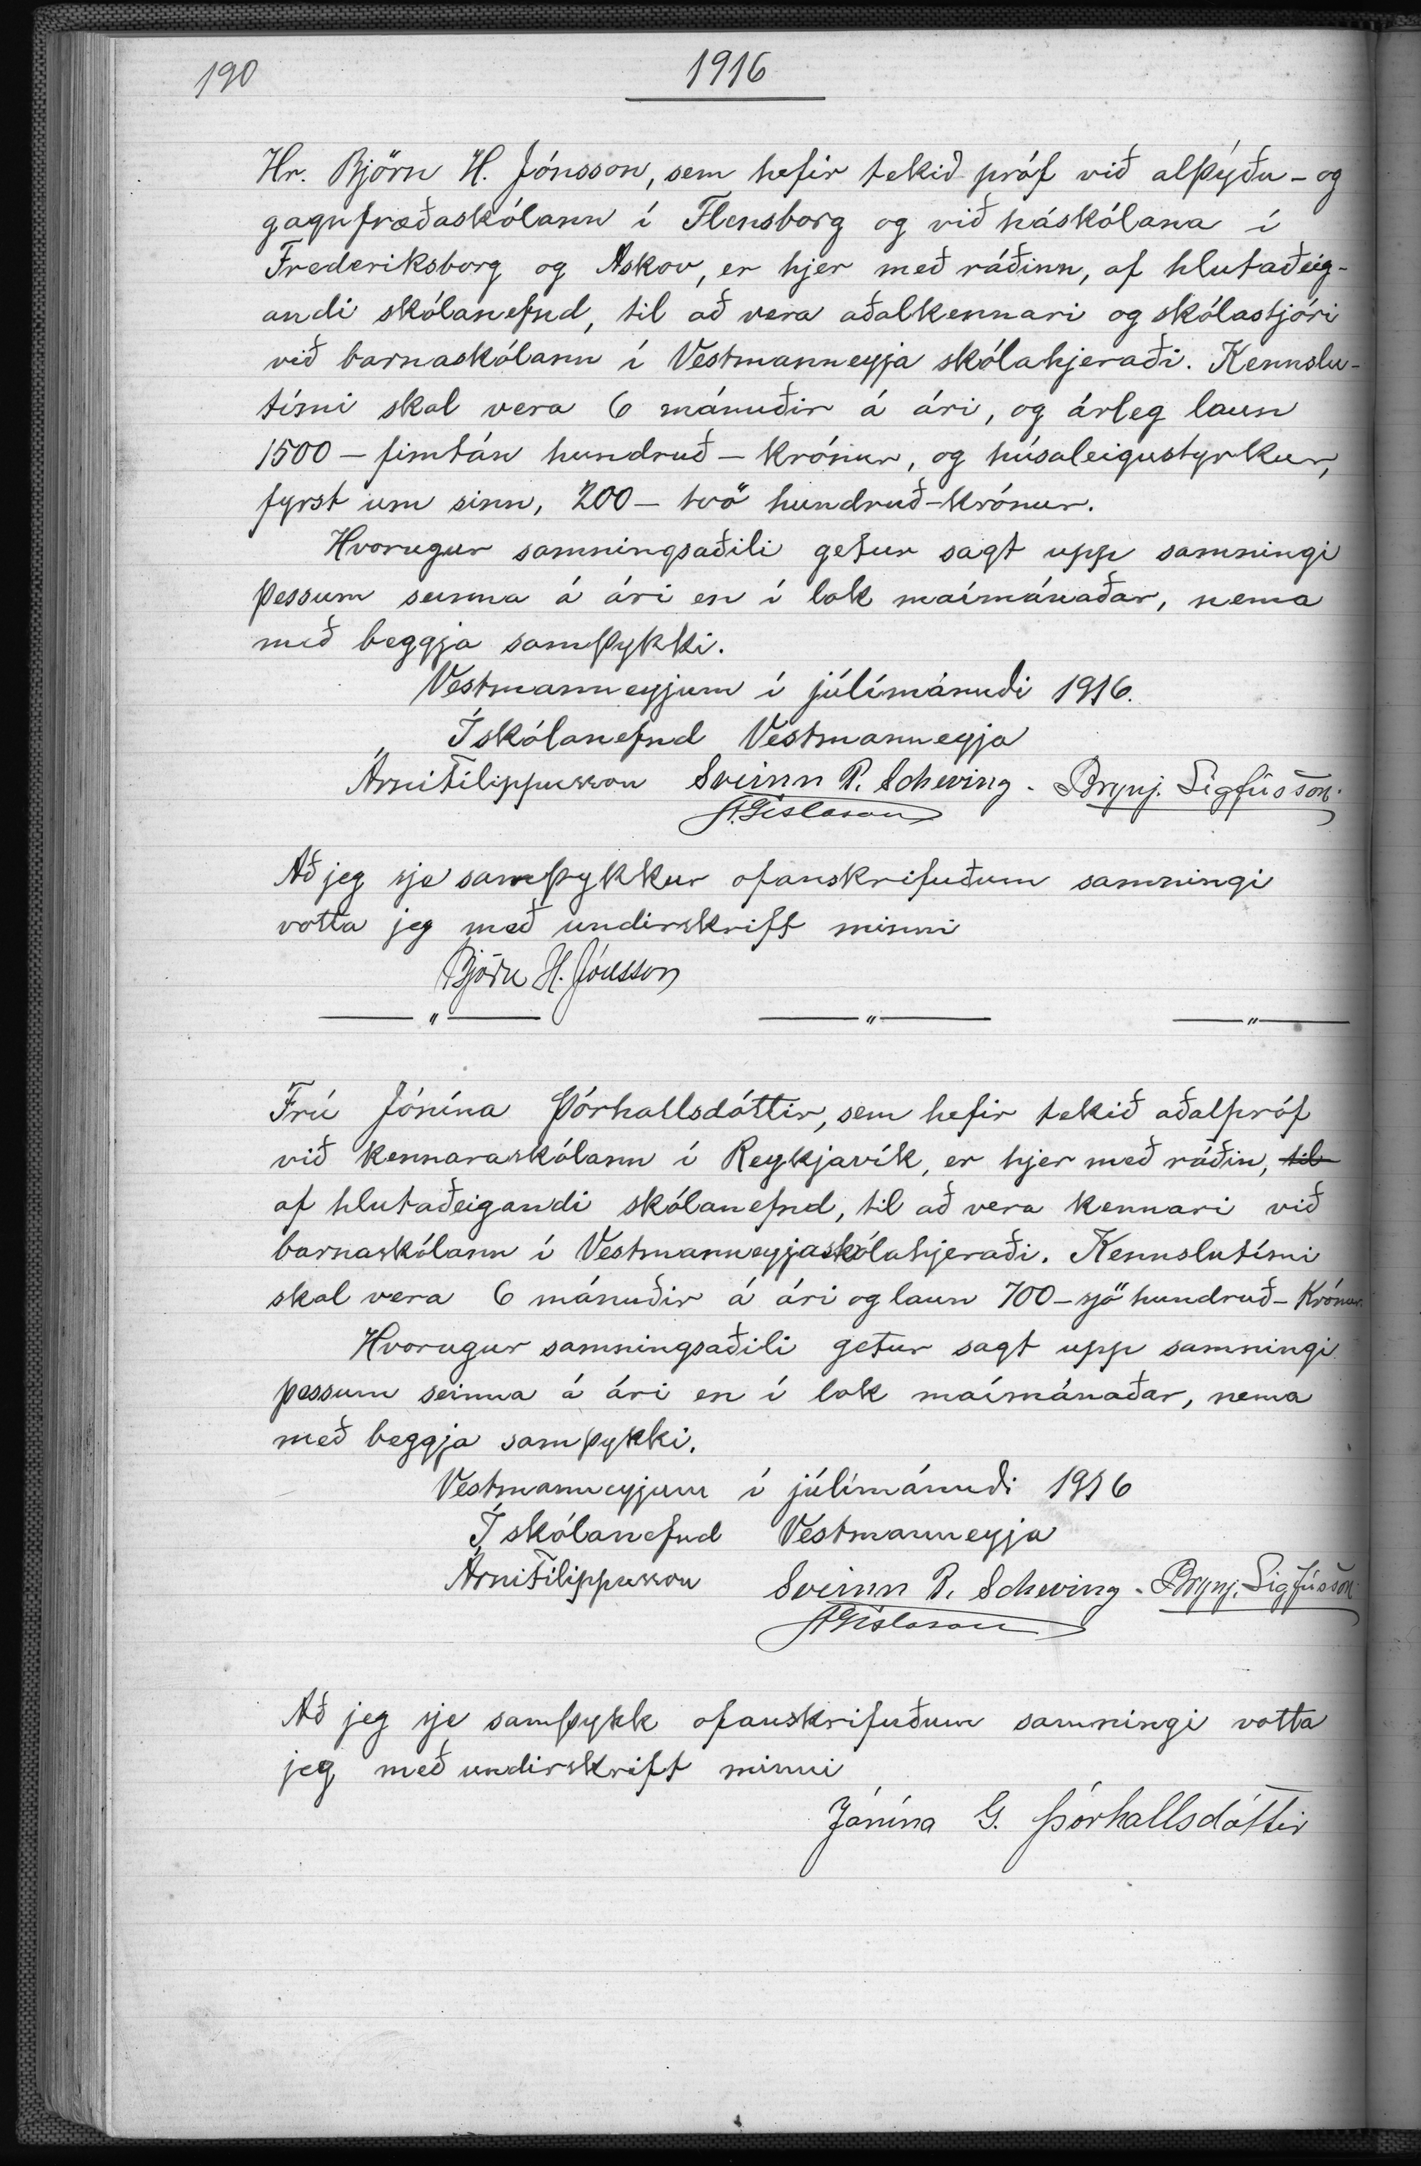 190
1916
Hr. Björn H. Jónsson, sem hefir tekið próf við alþýðu- og
gagnfræðaskólann í Flensborg og við háskólana í
Frederiksborg og Askov, er hjer með ráðinn, af hlutaðeig-
andi skólanefnd, til að vera aðalkennari og skólastjóri
við barnaskólann í Vestmanneyja skólahjeraði. Kennslu-
tími skal vera 6 mánuðir á ári, og árleg laun
1500 – fimtán hundruð – krónur, og húsaleigustyrkur,
fyrst um sinn, 200 – tvö hundruð – krónur.
Hvorugur samningsaðili getur sagt upp samningi
þessum seinna á ári en í lok maímánaðar, nema
með beggja samþykki.
Vestmanneyjum í júlímánuði 1916.
Í skólanefnd Vestmanneyja
Árni Filippusson Sveinn P. Scheving - Brynj. Sigfússon.
A Gíslason
Að jeg sje samþykkur ofanskrifuðum samningi
votta jeg með undirskrift minni
Björn H. Jónsson
— " — — " — — " —
Frú Jónína Þórhallsdóttir, sem hefir tekið aðalpróf
við kennaraskólann í Reykjavík, er hjer með ráðin, til
af hlutaðeigandi skólanefnd, til að vera kennari við
barnaskólann í Vestmanneyjaskólahjeraði. Kennslutími
skal vera 6 mánuðir á ári og laun 700 – sjö hundruð – Krónur.
Hvorugur samningsaðili getur sagt upp samningi
þessum seinna á ári en í lok maímánaðar, nema
með beggja samþykki.
Vestmanneyjum í júlímánuði 1916
Í skólanefnd Vestmanneyja
Árni Filippusson Sveinn P. Scheving - Brynj. Sigfússon
A Gíslason
Að jeg sje samþykk ofanskrifuðum samningi votta
jeg með undirskrift minni
Jónína G. Þórhallsdóttir